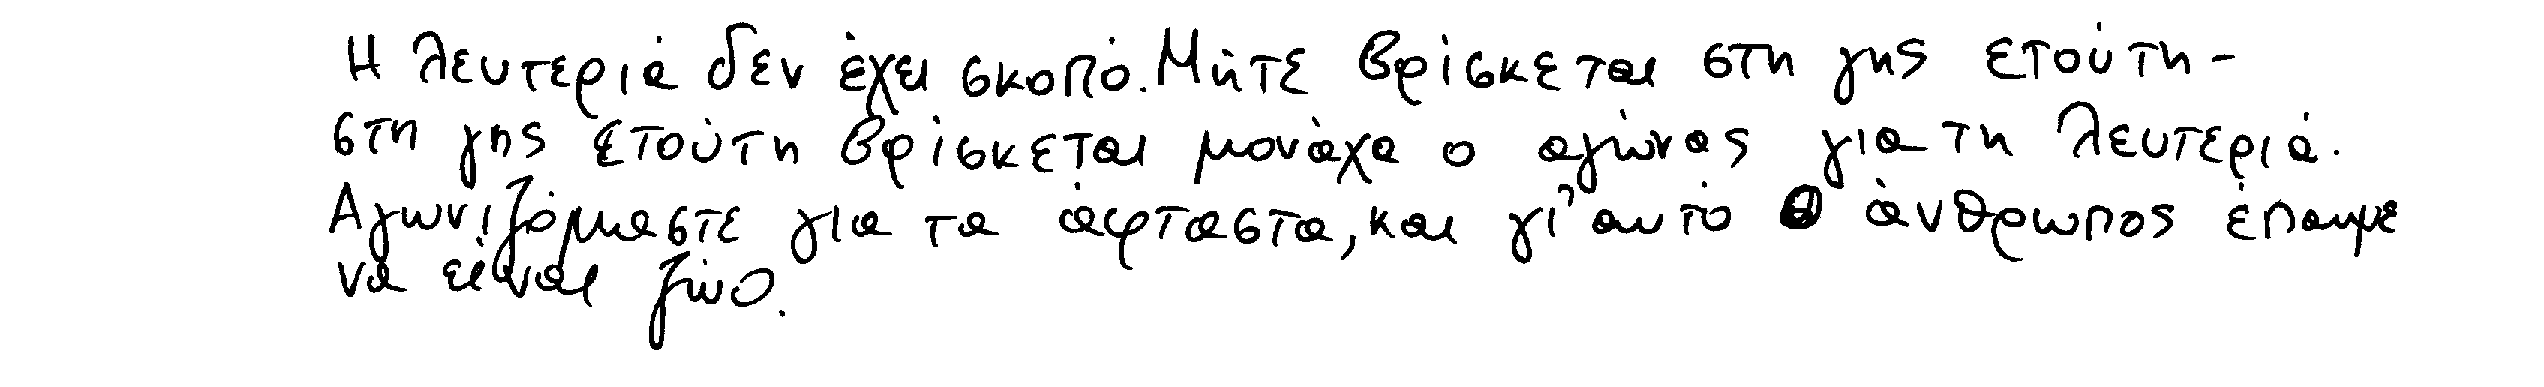 Η λευτεριά δεν έχει σκοπό. Μήτε βρίσκεται στη γης ετούτη-
στη γης ετούτη βρίσκεται μονάχα ο αγώνας για τη λευτεριά.
Αγωνιζόμαστε για τα άφταστα, και γι' αυτό ο άνθρωπος έπαψε
να είναι ζώο.